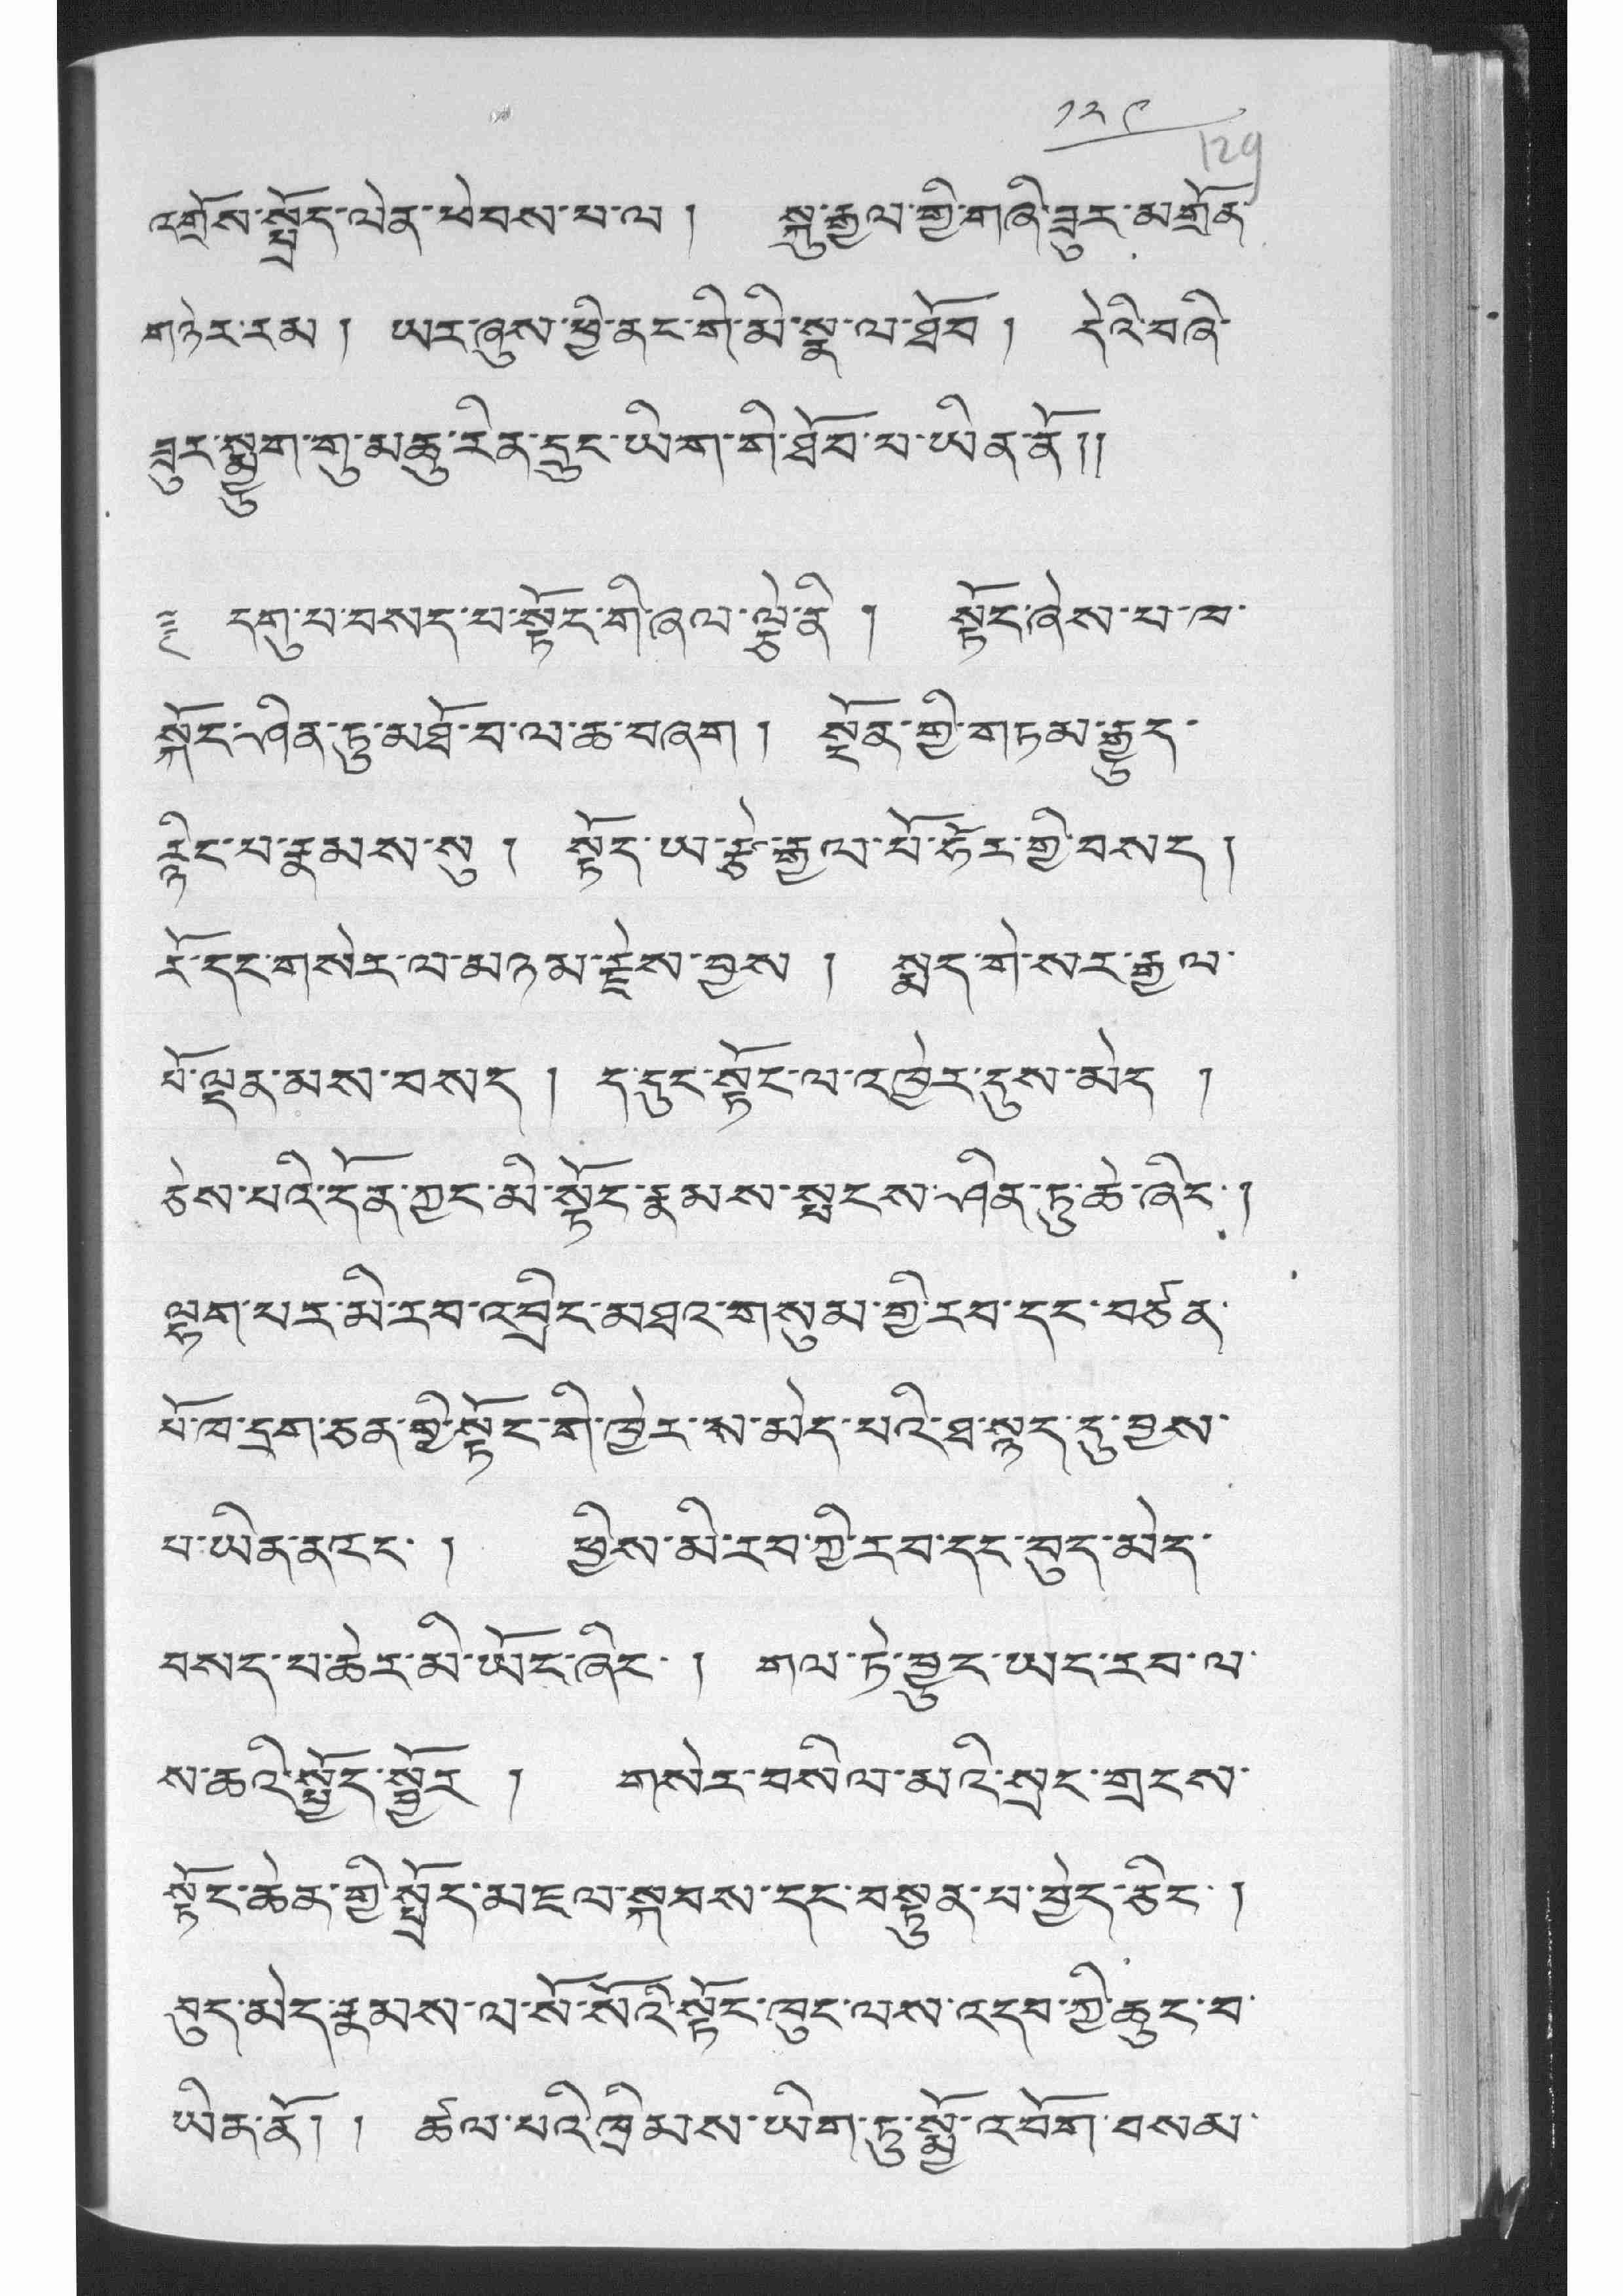 ༡༢༩
129
འགྲོས་སྤྲོད་ལེན་ཕེབས་པ་ལ། སྐུ་རྒྱལ་གྱི་གཞི་ཟུར་མགྲོན་
གཉེར་རམ། ཡར་ཞུས་ཕྱི་ནང་གི་མི་སྣ་ལ་ཐོབ། དེའི་བཞི་
ཟུར་སྨྱུག་གུ་མཆུ་རིན་དྲུང་ཡིག་གི་ཐོབ་པ་ཡིན་ནོ།།
༄ དགུ་པ་བསད་པ་སྟོང་གི་ཞལ་ལྕེ་ནི། སྟོང་ཞེས་པ་ཁ་
སྐོང་ཤིན་ཏུ་མཐོ་བ་ལ་ཆ་བཞག། སྔོན་གྱི་གཏམ་རྒྱུད་
རྙིང་པ་རྣམས་སུ། སྟོད་ཡ་རྩེ་རྒྱལ་པོ་ཧོར་གྱི་བསད།
རོ་དང་གསེར་ལ་མཉམ་རྗེས་བྱས། སྨད་གེ་སར་རྒྱལ་
པོ་ལྡན་མས་བསད། ད་དུང་སྟོང་ལ་འཁྱེར་དུས་མེད།
ཅེས་པའི་དོན་ཀྱང་མི་སྟོང་རྣམས་སྤངས་ཤིན་ཏུ་ཆེ་ཞིང་།
ལྷག་པར་མི་རབ་འབྲིང་མཐའ་གསུམ་གྱི་རབ་དང་བཙན་
པོ་ཁ་དྲག་ཅན་གྱི་སྟོང་གི་ཁྱེར་ས་མེད་པའི་ཐ་སྙད་དུ་བྱས་
པ་ཡིན་ནའང་། ཕྱིས་མི་རབ་ཀྱི་རབ་དང་བུད་མེད་
བསད་པ་ཆེར་མི་ཡོང་ཞིང་། གལ་ཏེ་བྱུང་ཡང་རབ་ལ་
ས་ཆའི་སྤྱོད་སྦྱོར། གསེར་བསིལ་མའི་སྲང་གྲངས་
སྟོང་ཆེན་གྱི་སྤྲོད་མཇལ་སྐབས་དང་བསྟུན་པ་བྱེད་ཅིང་།
བུད་མེད་རྣམས་ལ་སོ་སོའི་སྟོང་ཁུང་ལས་འདབ་ཀྱི་ཆུང་བ་
ཡིན་ནོ།། ཚལ་པའི་ཁྲིམས་ཡིག་ཏུ་སྨྱོ་འབོག་བསམ་